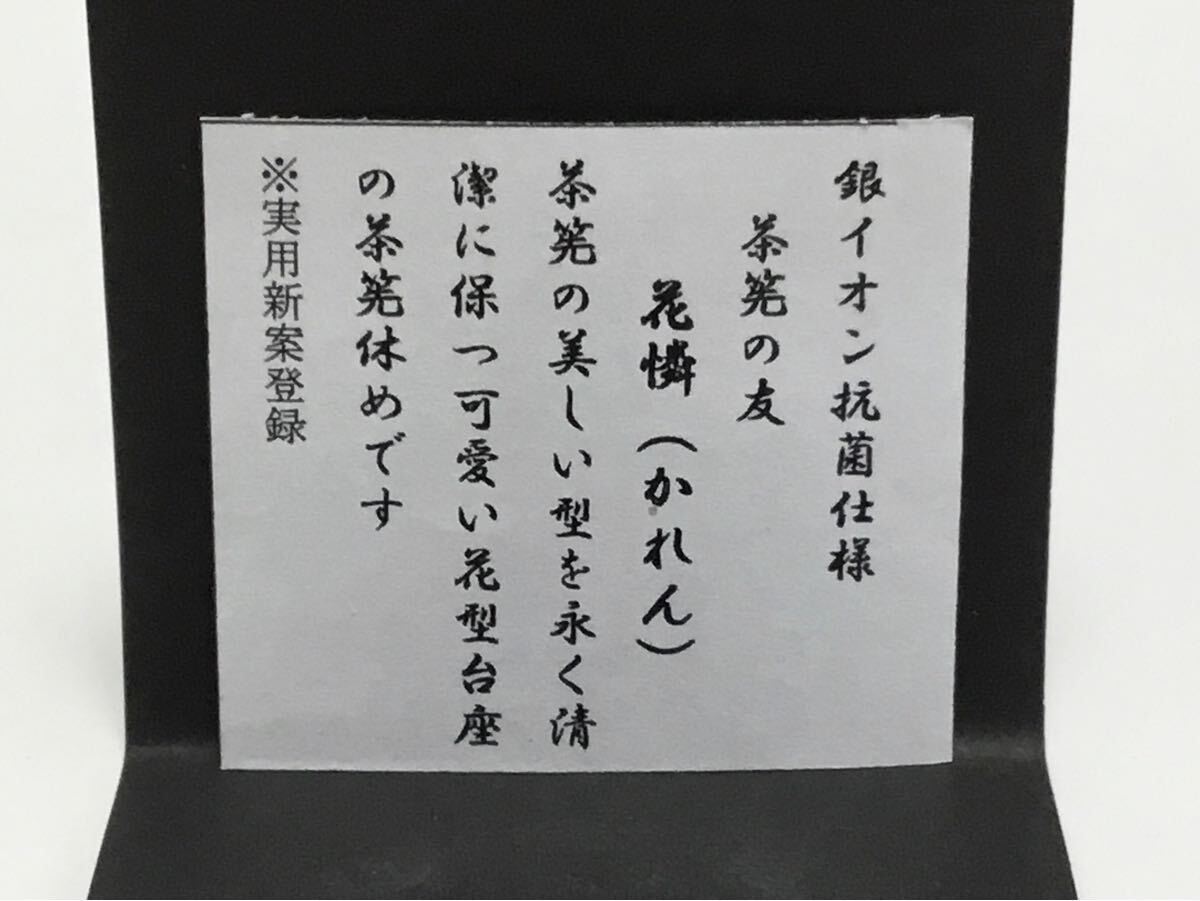 銀イオン抗菌仕様
茶筅の友
花憐（かれん）
茶筅の美しい型を永く清
潔に保つ可愛い花型台座
の茶筅休めです
※実用新案登録